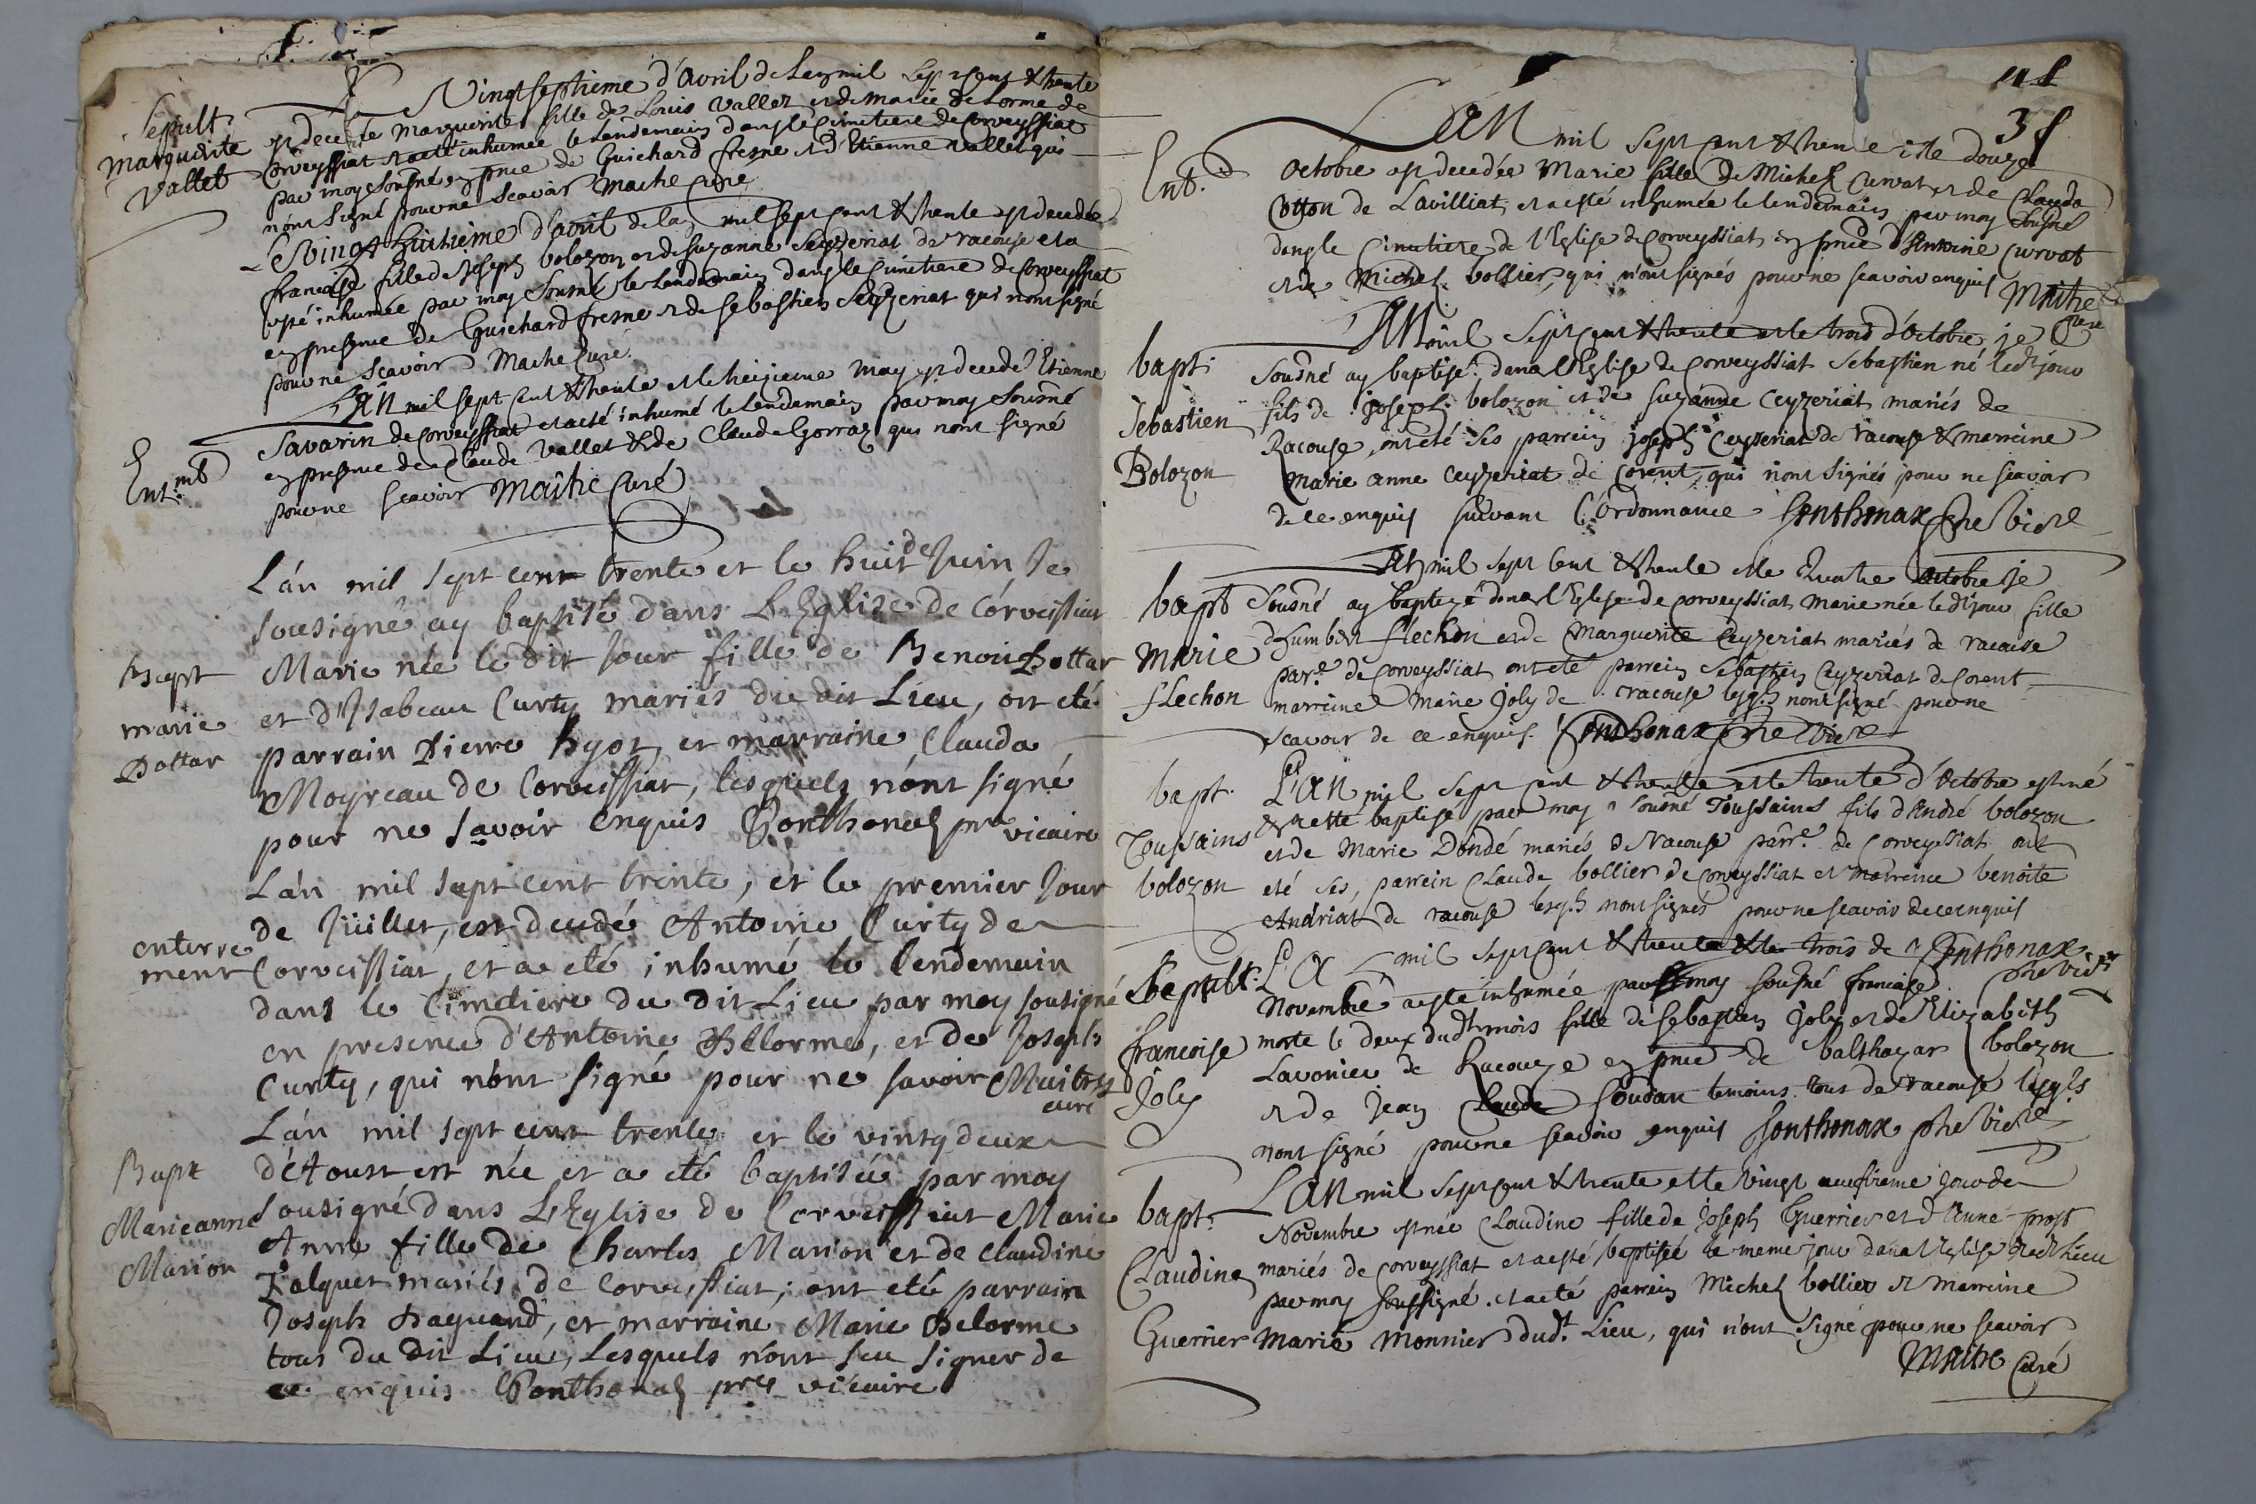 Sepult.
Marguerite
Vallet
Vingtseptieme d'avril de lan mil sept cent & trente
est decedée Marguerite fille de Louis Vallet et de Marie delorme de
Corveyssiat et a eté inhumée le lendemain dans le cimetiere de Corveyssiat
par moy sousné en pnce de Guichard fresne et d'Etienne Vallet qui
n'ont signé pour ne scavoir Maitre Curé
Le Vingt huitieme d'avril de lan mil sept cent & trente est decedée
francoise fille de Joseph bolozon et de Suzanne Seyzeriat de racouse et a
esté inhumée par moy Sousné le lendemain dans le cimetiere de Corveyssiat
en presence de Guichard fresne et de Sebastien Seyzeriat qui n'ont signé
pour ne scavoir Maitre Curé
Ent.mt
L'an mil sept cent & trente et le treizieme may est decedé Etienne
Savarin de Corveyssiat et a eté inhumé le lendemain par moy Sousné
en presence de Claude Vallet & de Claude Gorraz qui n'ont signé
pour ne scavoir Maitre Curé
Bapt
marie
Dottar
L'an mil sept cent trente et le huit de Juin Je
sousigné ay baptisé dans L'Eglise de Corveissiat
Marie née le dit Jour fille de Benoit Dottar
et d'Isabeau Curty mariés du dit Lieu, ont eté
parrain Pierre hyoz, et marraine Clauda
Moyreau de Corveissiat, lesquels n'ont signé
pour ne savoir enquis Sonthonas pre vicaire
enterre
ment
L'an mil sept cent trente, et le premier Jour
de Juillet, est decedé Antoine Curty de
Corveissiat, et a eté inhumé le lendemain
dans le Cimetiere du dit Lieu par moy sousigné
en presence d'Antoine Delorme, et de Joseph
Curty, qui n'ont signé pour ne savoir Maitre
curé
Bapt
Marieanne
Marion
L'an mil sept cent trente et le vinty deux
d'Aoust est née et a eté baptisée par moy
sousigné dans L'Eglise de Corveissiat Marie
Anne fille de Charles Marion et de Claudine
Falquet mariés de Corveissiat, ont eté parrain
Joseph Daguand, et marraine Marie Delorme
tous du dit Lieu, Lesquels n'ont seu signer de
ce enquis Sonthonas pre vicaire
38
Ent.
L'AN mil sept cent & trente et le douze
Octobre est decedée Marie fille de Michel Curvat et de Clauda
Cotton de Lavilliat, et a esté inhumée le lendemain par moy Sousné
dans le Cimetiere de l'Eglise de Corveyssiat en pnce d'Antoine Curvat
et de Michel vollier, qui n'ont signés pour ne scavoir enquis Maitre
Curé
bapt.
Sebastien
Bolozon
L'AN mil sept cent & trente et le trois d'Octobre je
Sousné ay baptisé dans l'Eglise de Corveyssiat Sebastien né led. jour
fils de Joseph bolozon et de Suzanne Ceyzeriat mariés de
Racouse, ont été ses parrein Joseph Ceyzeriat de racouse & marreine
Marie anne Ceyzeriat de Corent, qui n'ont signés pour ne scavoir
de ce enquis suivant l'ordonnance Sonthonax pre vicre
bapt
Marie
flechon
L'An mil sept cent & trente et le Quatre Octobre je
Sousné ay baptizé dans l'Eglise de Corveyssiat Marie née led. jour fille
d'humbert flechon et de Marguerite Ceyzeriat mariés de racouse
parr.e de Corveyssiat ont eté parrein Sebastien Ceyzeriat de Corent
marreine Marie Joly de racouse lesq.ls n'ont signé pour ne
scavoir de ce enquis. Sonthonax pre vicre
bapt.
Toussains
bolozon
L'an mil sept cent & trente et le trente d'Octobre est né
& a ette baptisé par moy sousné Toussaint fils d'André bolozon
et de Marie Dondé mariés de racouse parr.e de Corveyssiat ont
eté ses parrein Claude bollier de Corveyssiat et marreine benoite
Andriat de racouse lesq.ls n'ont signés pour ne scavoir de ce enquis
Sonthonax
pre vicre
Sepult.
francoise
Joly
L'An mil sept cent & trente & le trois de
Novembre a esté inhumée par moy sousné francoise
morte le deux dud.t mois fille de Sebastien Joly et de Elizabeth
Lavonier de Racouze en pnce de balthazar bolozon
et de Jean Claude Soudan temoins tous de racouse lesq.ls
n'ont signé pour ne scavoir enquis Sonthonax pre vicre
bapt.
Claudine
Guerrier
L'AN mil sept cent & trente et le vingt neufvieme jour de
Novembre est née Claudine fille de Joseph Guerrier et d'Anne prost
mariés de Corveyssiat et a esté baptisée le meme jour dans l'Eglise dud.t lieu
par moy soussigné. et a eté parrein Michel bollier et marreine
Marie Monnier dud.t Lieu, qui n'ont signé pour ne scavoir
Maitre Curé